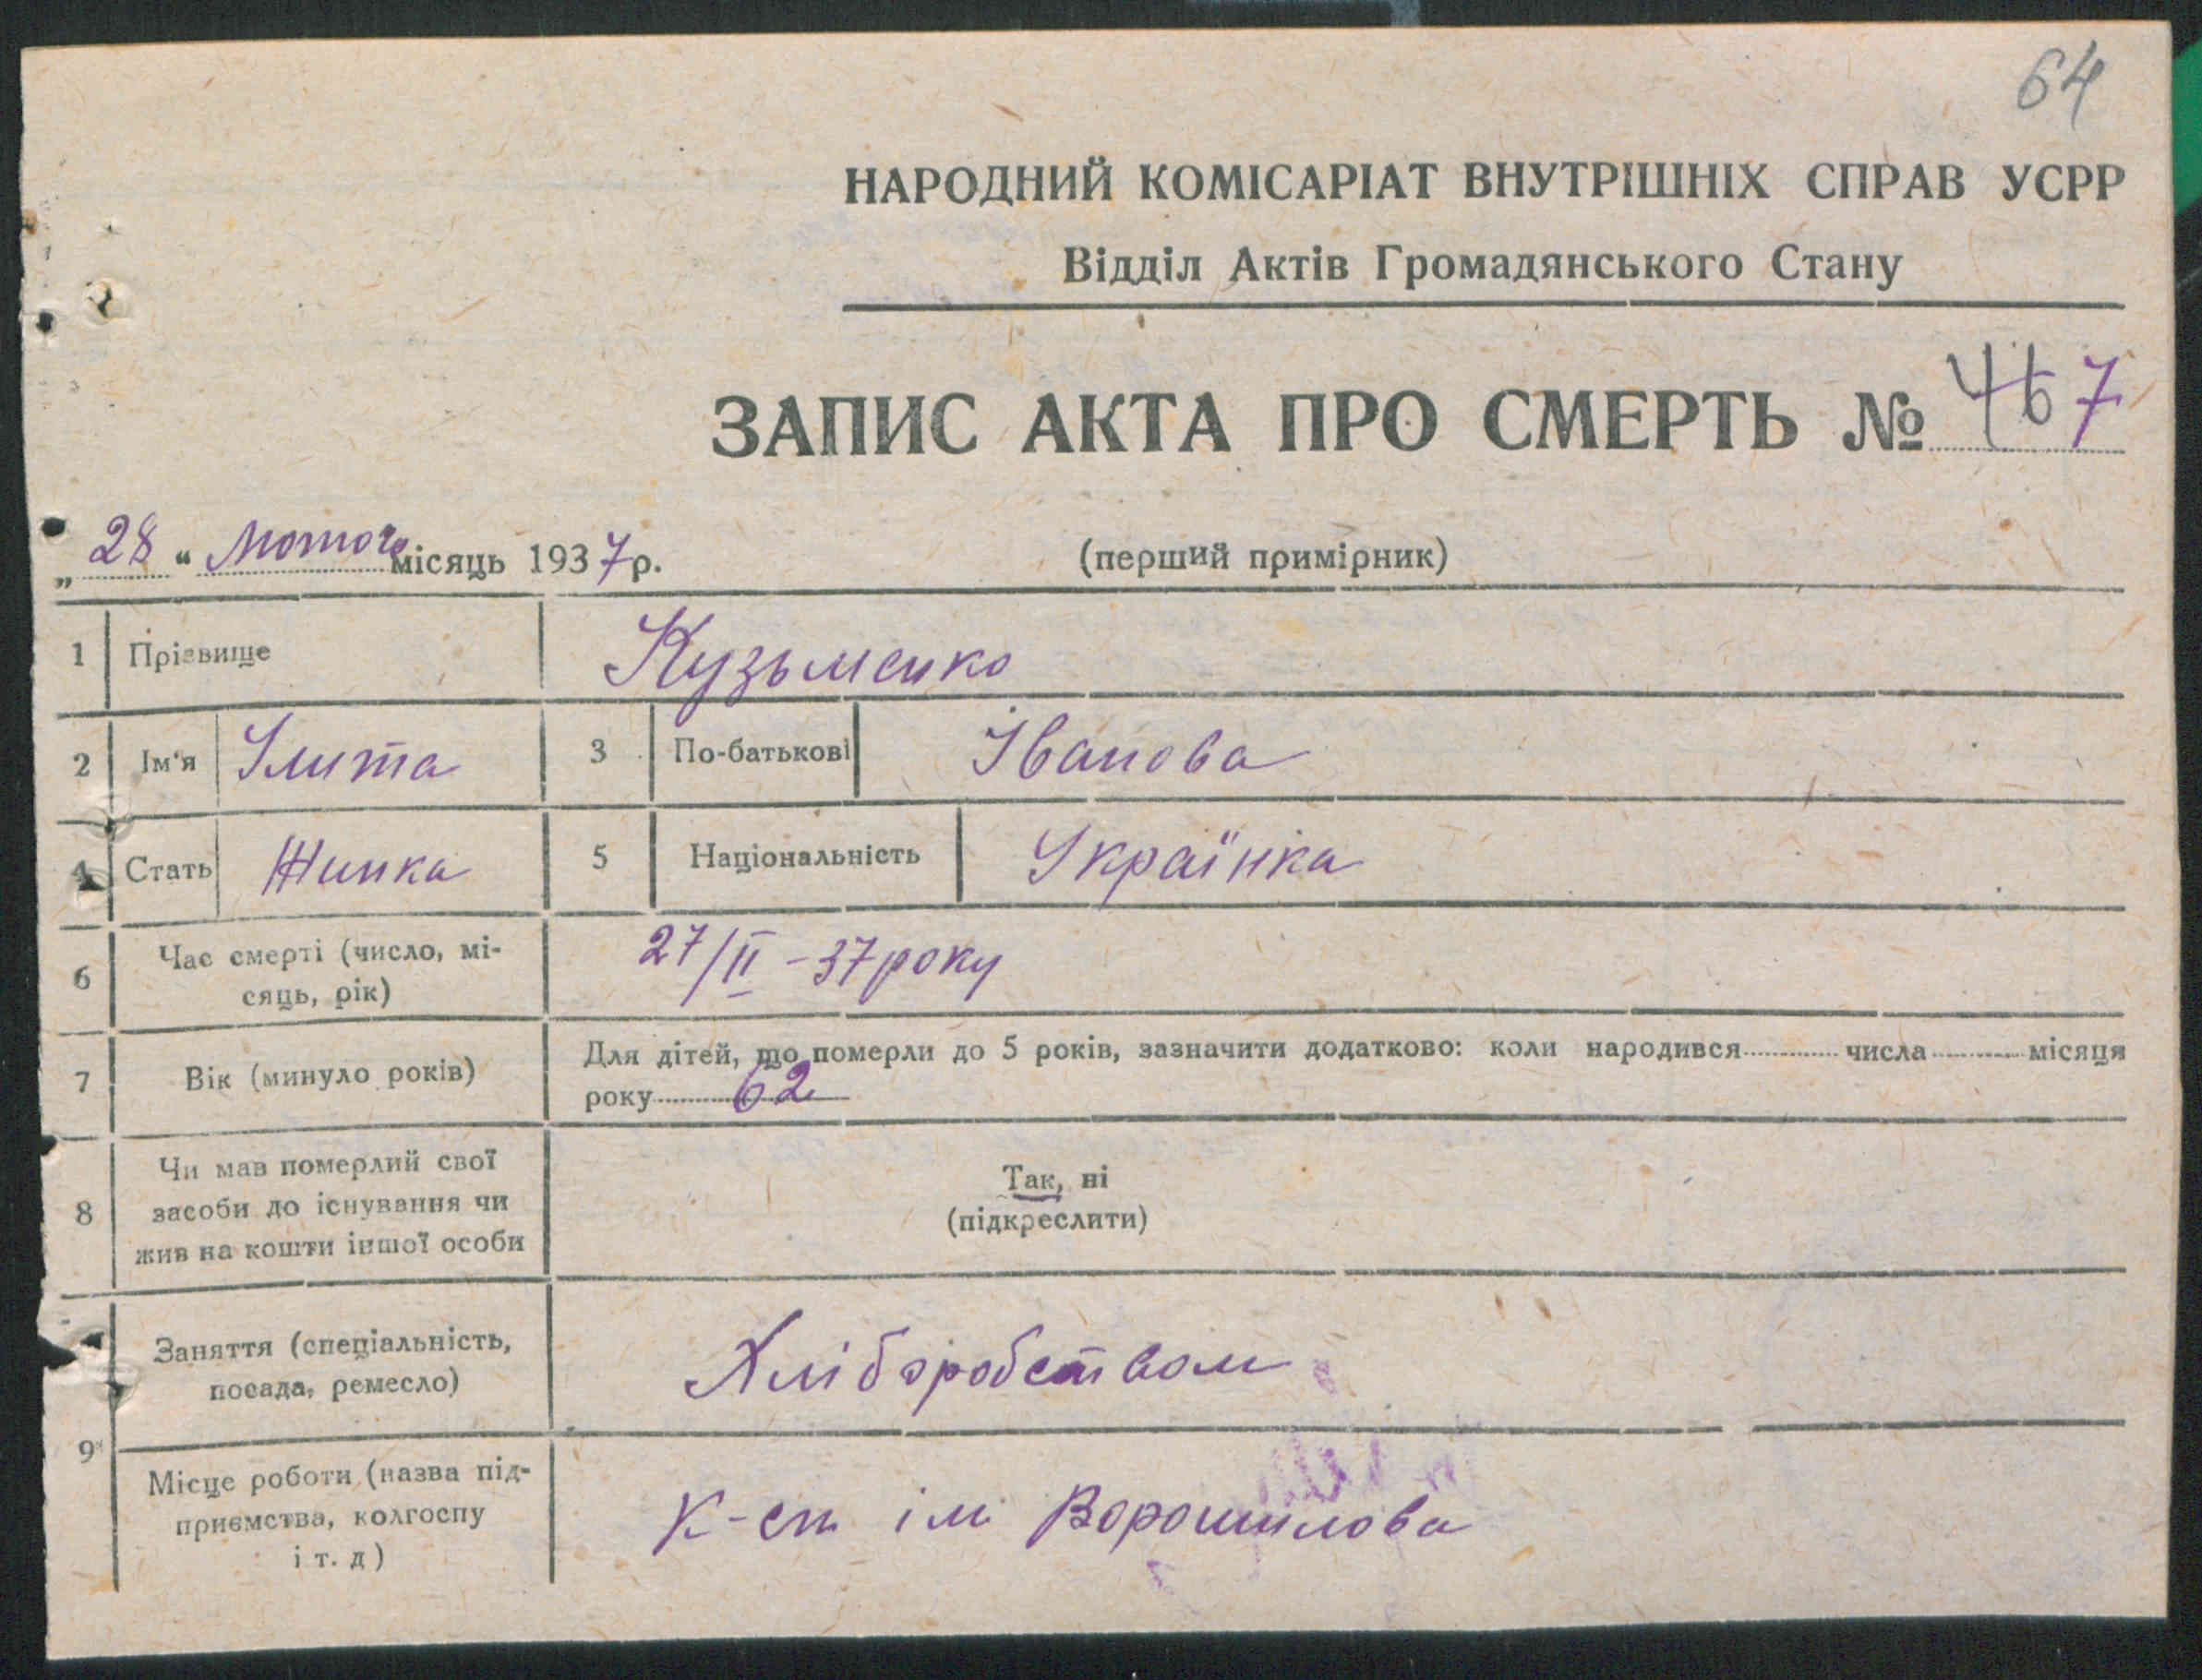 64
НАРОДНИЙ КОМІСАРІАТ ВНУТРІШНІХ СПРАВ УСРР
Відділ Актів Громадянського Стану
ЗАПИС АКТА ПРО СМЕРТЬ № 467
„28“ Лютого місяць 1937 р. (перший примірник)
1 Прізвище Кузьменко
2 Ім'я Улита 3 По-батькові Іванова
4 Стать Жинка 5 Національність Українка
6 Час смерті (число, мі-
сяць, рік) 27/II – 37 року
7 Вік (минуло років) Для дітей, що померли до 5 років, зазначити додатково: коли народився числа місяця
року 62
8 Чи мав померлий свої
засоби до існування чи
жив на кошти іншої особи
Так, ні
(підкреслити)
9 Заняття (спеціальність,
посада, ремесло) Хліборобством
Місце роботи (назва під-
приємства, колгоспу
і т. д) К-сп ім Ворошилова